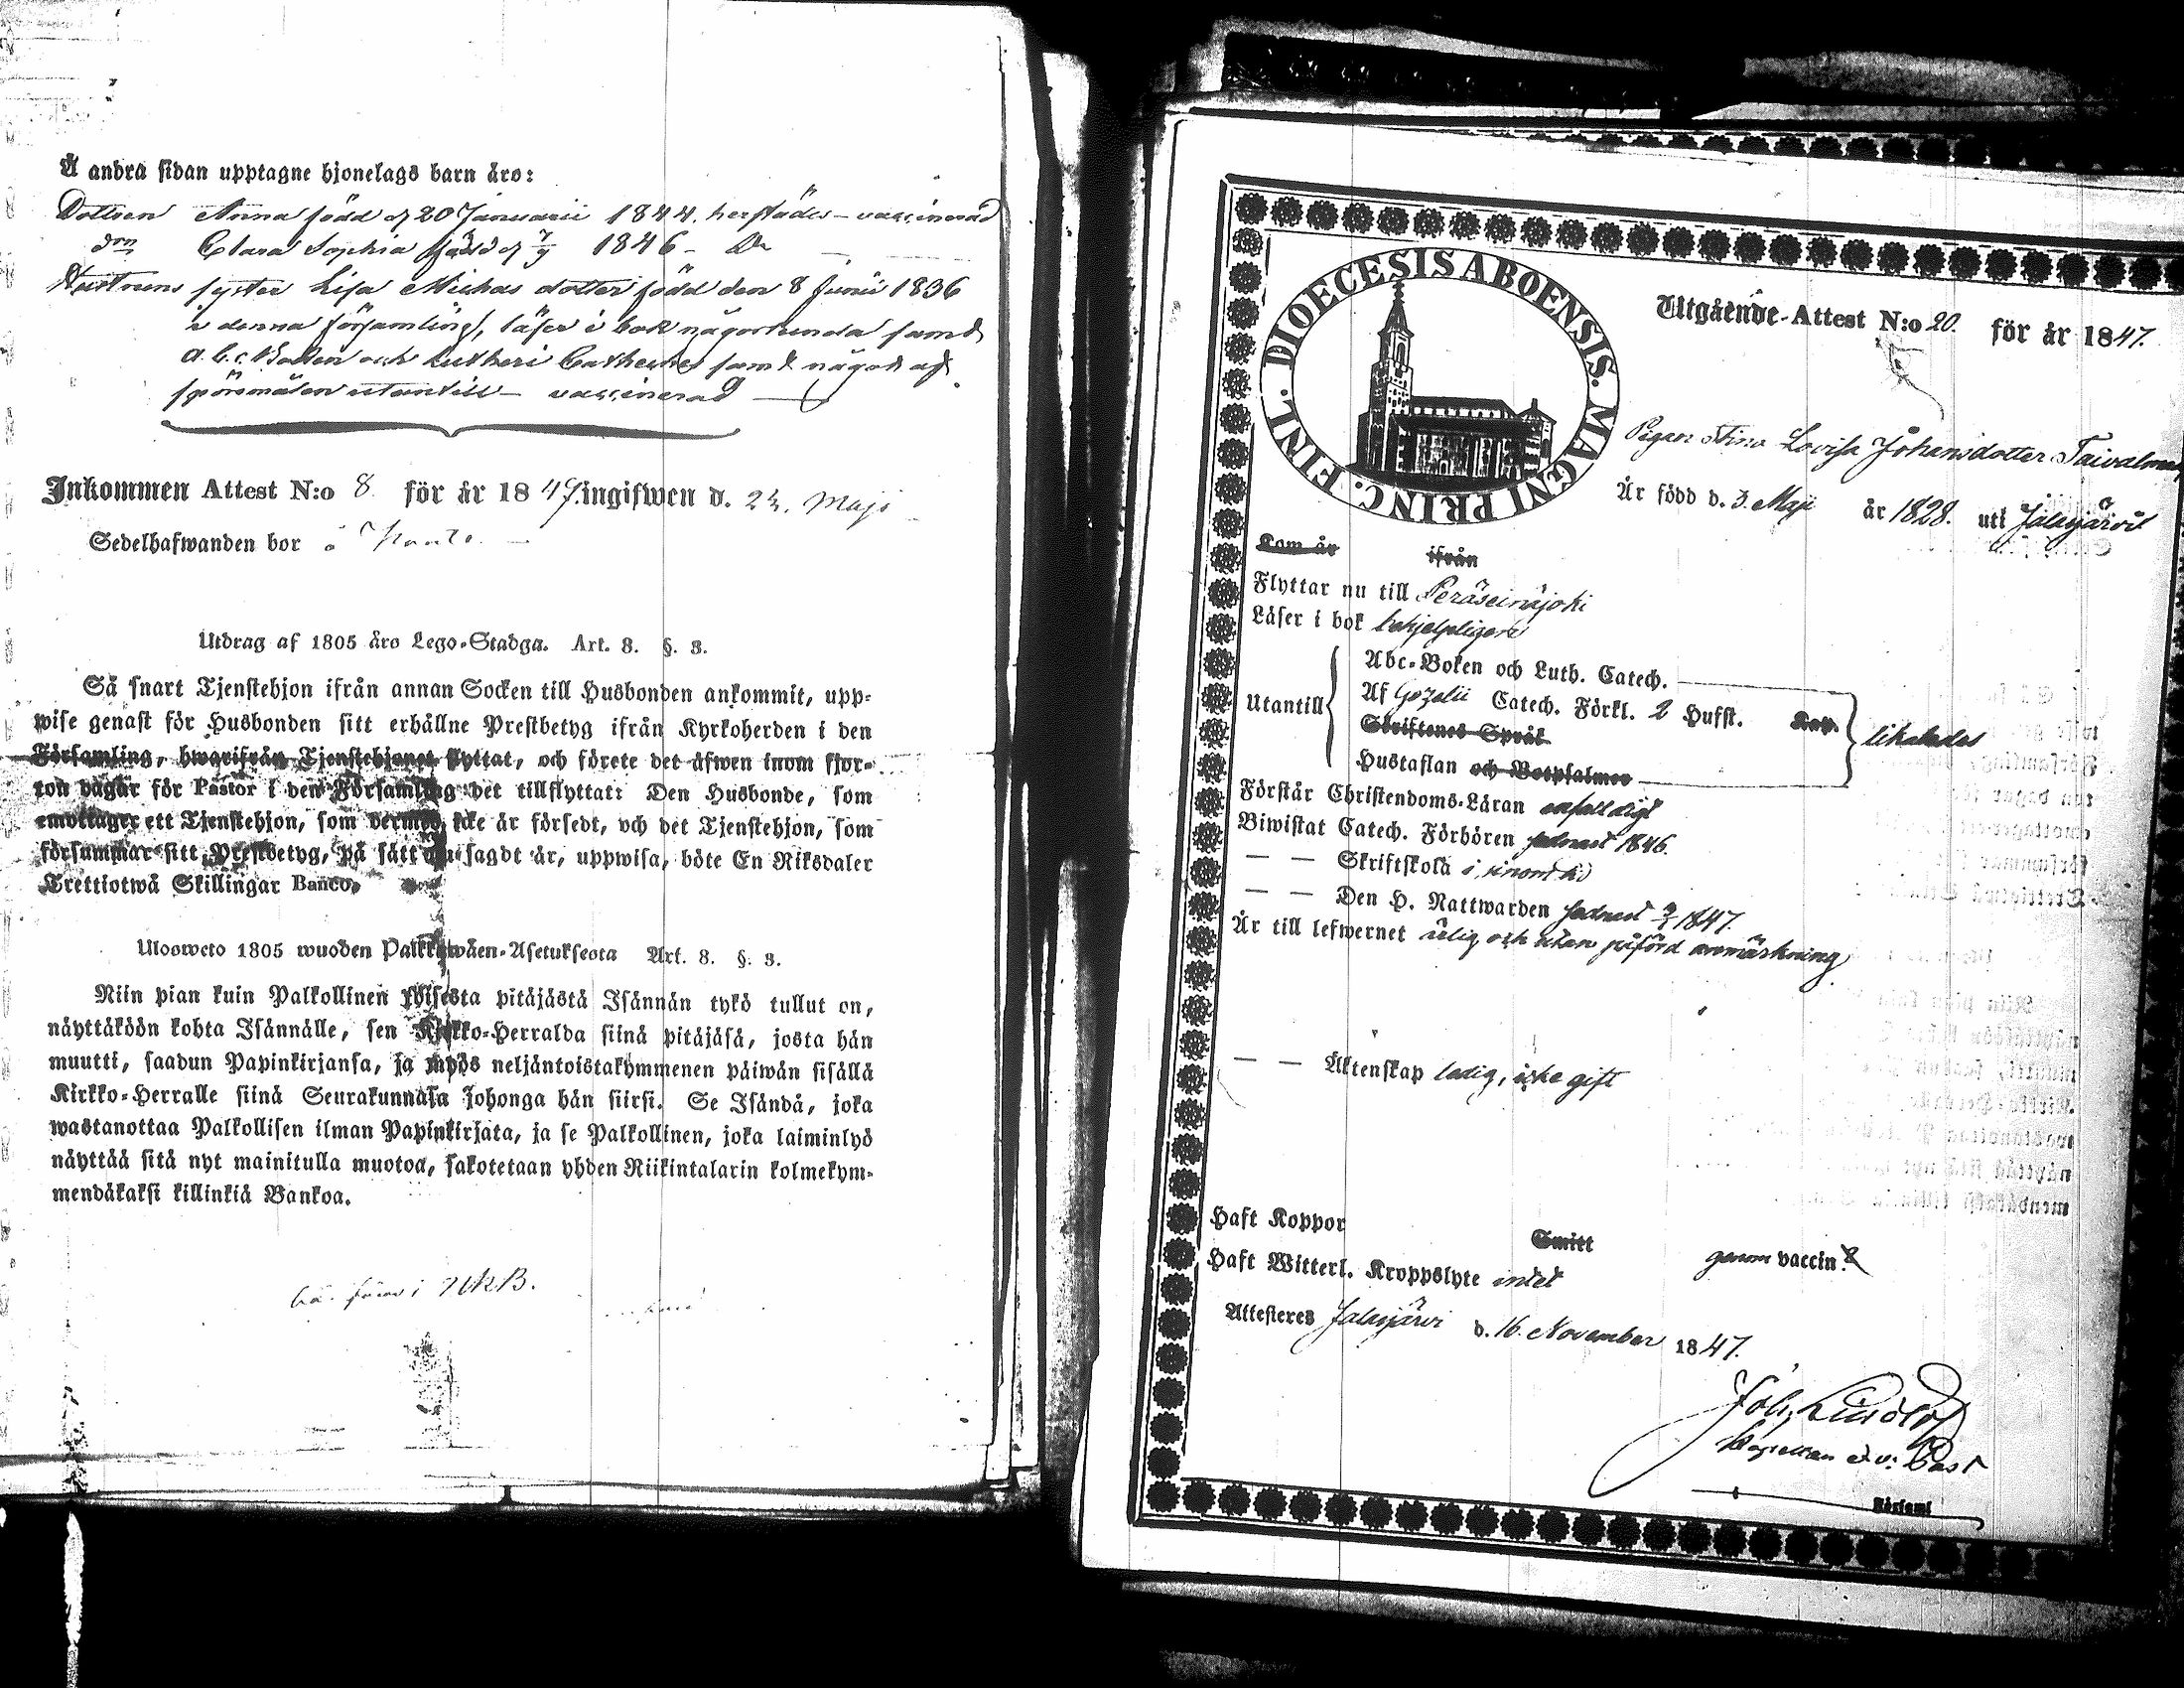 Å andra sidan upptagne hjonelags barn äro:
Dottren Anna född d 20 Januarii 1844. herstädes – vaccinerad
d:rn Clara Sophia född d 7/9 1846 – D:o
Hustruns syster Lisa Michas dotter född den 8 Junii 1836
i denna församling, läser i bok någorlunda samt
a.b.c. Boken och Lutheri Catheches samt något af
spörsmålen utantill – vaccinerad
Inkommen Attest N:o 8 för år 1847. ingifwen d. 24. Maji
Sedelhafwanden bor
Utdrag af 1805 års Lego-Stadga. Art. 8. §. 3.
Så snart Tjenstehjon ifrån annan Socken till Husbonden ankommit, upp-
wise genast för Husbonden sitt erhållne Prestbetyg ifrån Kyrkoherden i den
Församling, hwarifrån Tjenstehjonet flyttat, och förete det äfwen inom fjor-
ton dagar för Pastor i den Församling det tillflyttat: Den Husbonde, som
emottager ett Tjenstehjon, som dermed icke är försedt, och det Tjenstehjon, som
försummar sitt Prestbetyg, på sätt nu sagdt är, uppwisa, böte En Riksdaler
Trettiotwå Skillingar Banco.
Ulosweto 1805 wuoden Palkkawäen-Asetuksesta Art. 8. §. 3.
Niin pian kuin Palkollinen toisesta pitäjästä Isännän tykö tullut on,
näyttäköön kohta Isännälle, sen Kirkko-Herralda siinä pitäjäsä, josta hän
muutti, saadun Papinkirjansa, ja myös neljäntoistakymmenen päiwän sisällä
Kirkko-Herralle siinä Seurakunnasa johonga hän siirsi. Se Isändä, joka
wastanottaa Palkollisen ilman Papinkirjata, ja se Palkollinen, joka laiminlyö
näyttää sitä nyt mainitulla muotoa, sakotetaan yhden Riikintalarin kolmekym-
mendäkaksi killinkiä Bankoa.
DIOECESIS ABOENSIS. MAGNI PRINC. FINL.
Utgående-Attest N:o 20. för år 1847.
Pigan Stina Lovisa Johansdotter
Är född d. 3. Maji år 1828. uti Jalasjärvi
Kom år ifrån
Flyttar nu till Peräseinäjoki
Läser i bok behjelpligen
Utantill
Abc-Boken och Luth. Catech.
Af Gezelii Catech. Förkl. 2 Hufst. Kap.
Skriftenes Språk
Hustaflan och Botpsalmer
likaledes
Förstår Christendoms-Läran enfaldigt
Biwistat Catech. Förhören sednast 1846.
— — Skriftskola
— — Den H. Nattwarden sednast 1847.
Är till lefwernet ärlig och utan påförd anmärkning
— — Äktenskap ledig, icke gift
Haft Koppor Smitt genom vaccin.
Haft Witterl. Kroppslyte intet
Attesteres Jalasjärvi d. 16. November 1847.
Församl